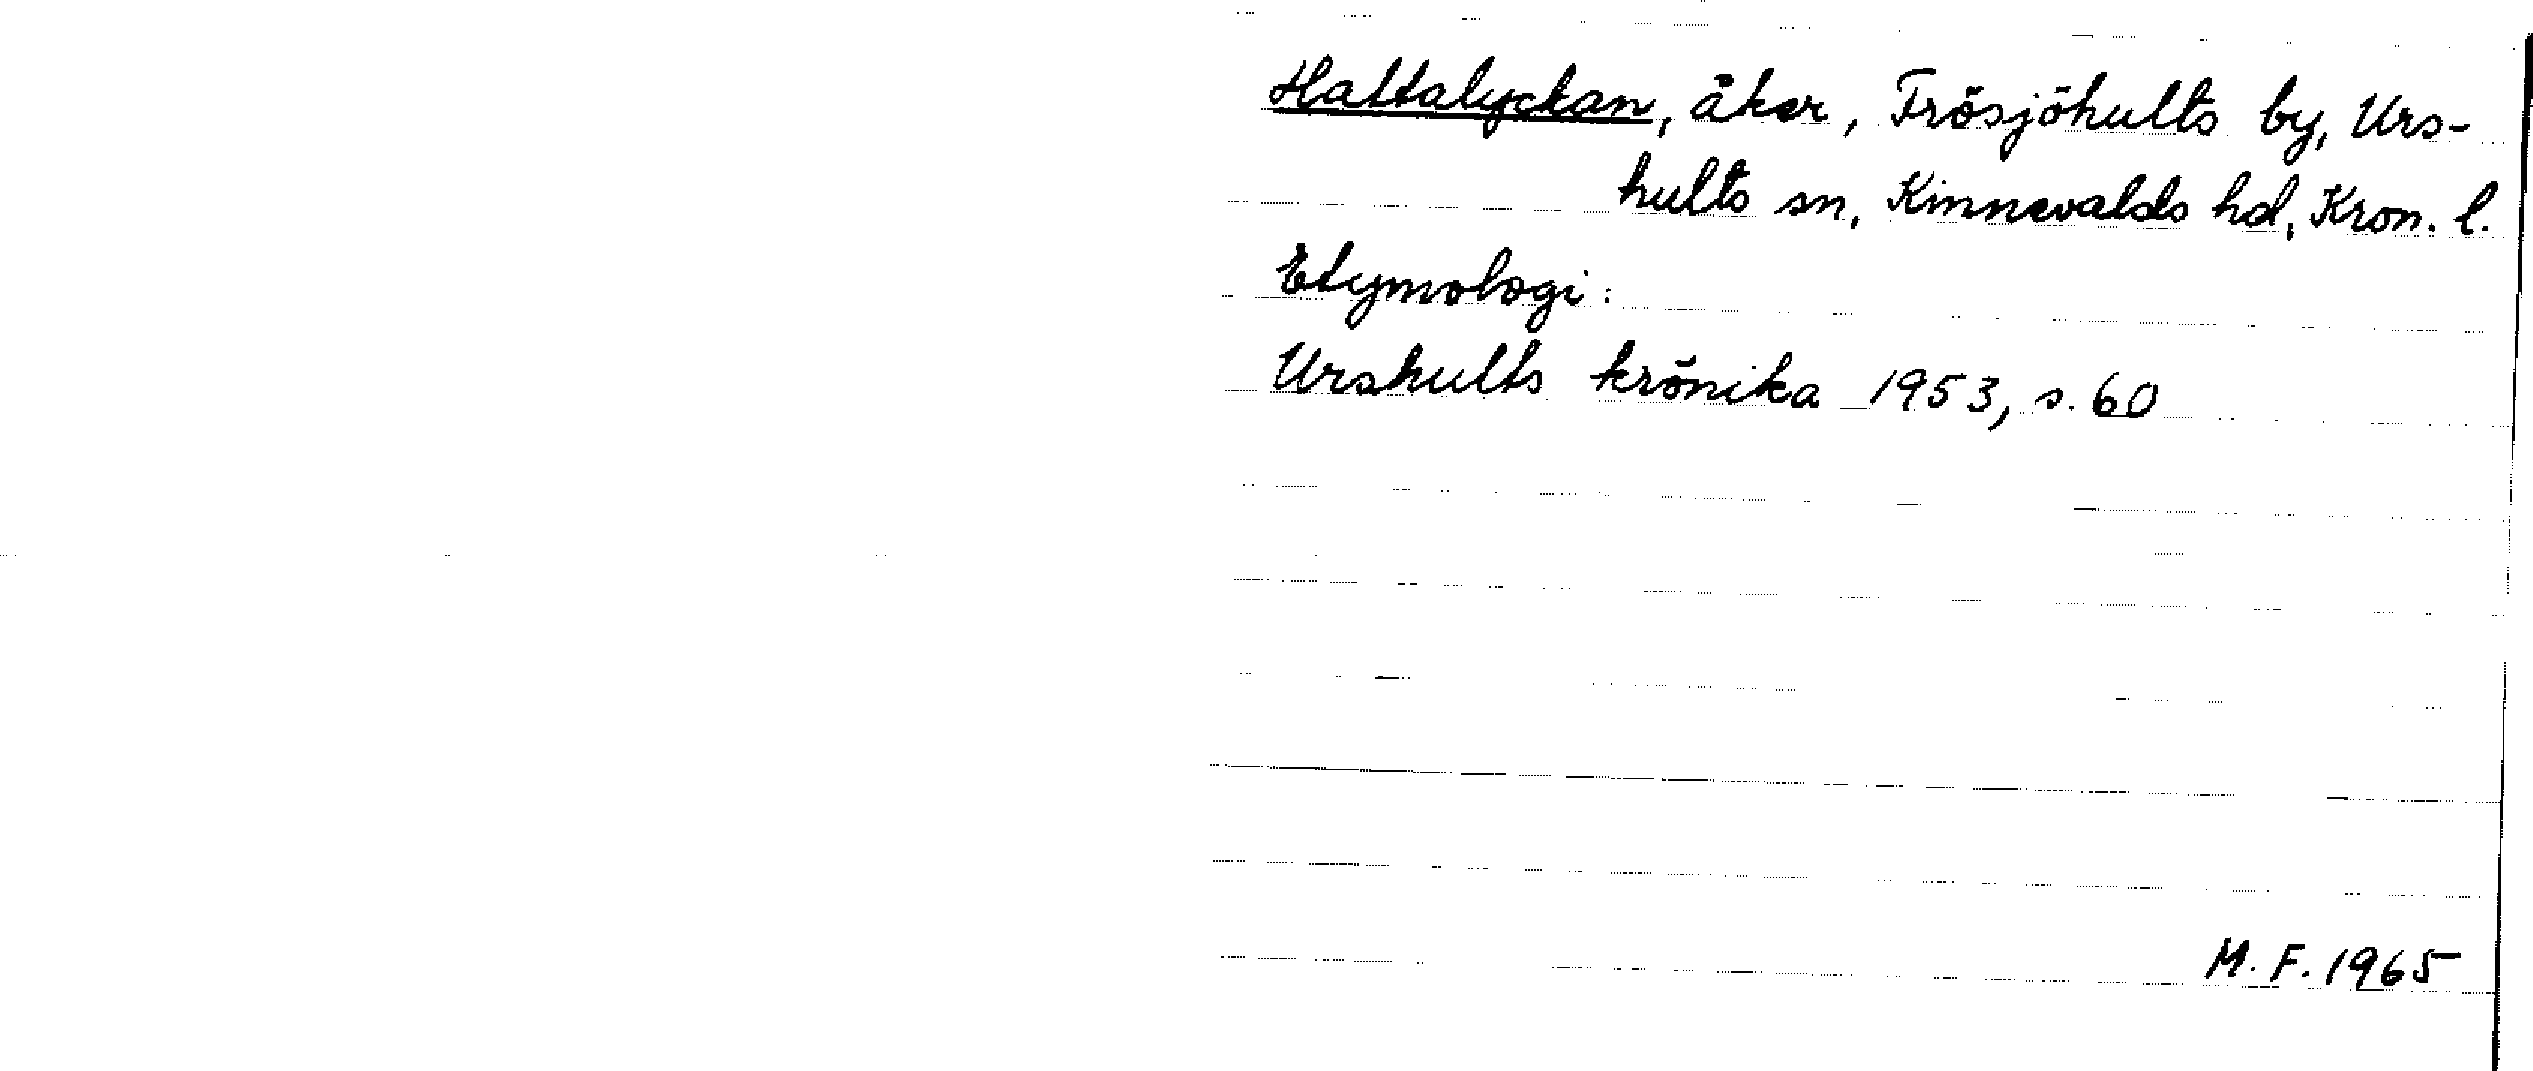 Hattalyckan, åker, Trösjöhults by, Urs-
hults sn, Kinnevalds hd, Kron. l.
Etymologi:
Urshults krönika 1953, s. 60
M. F. 1965